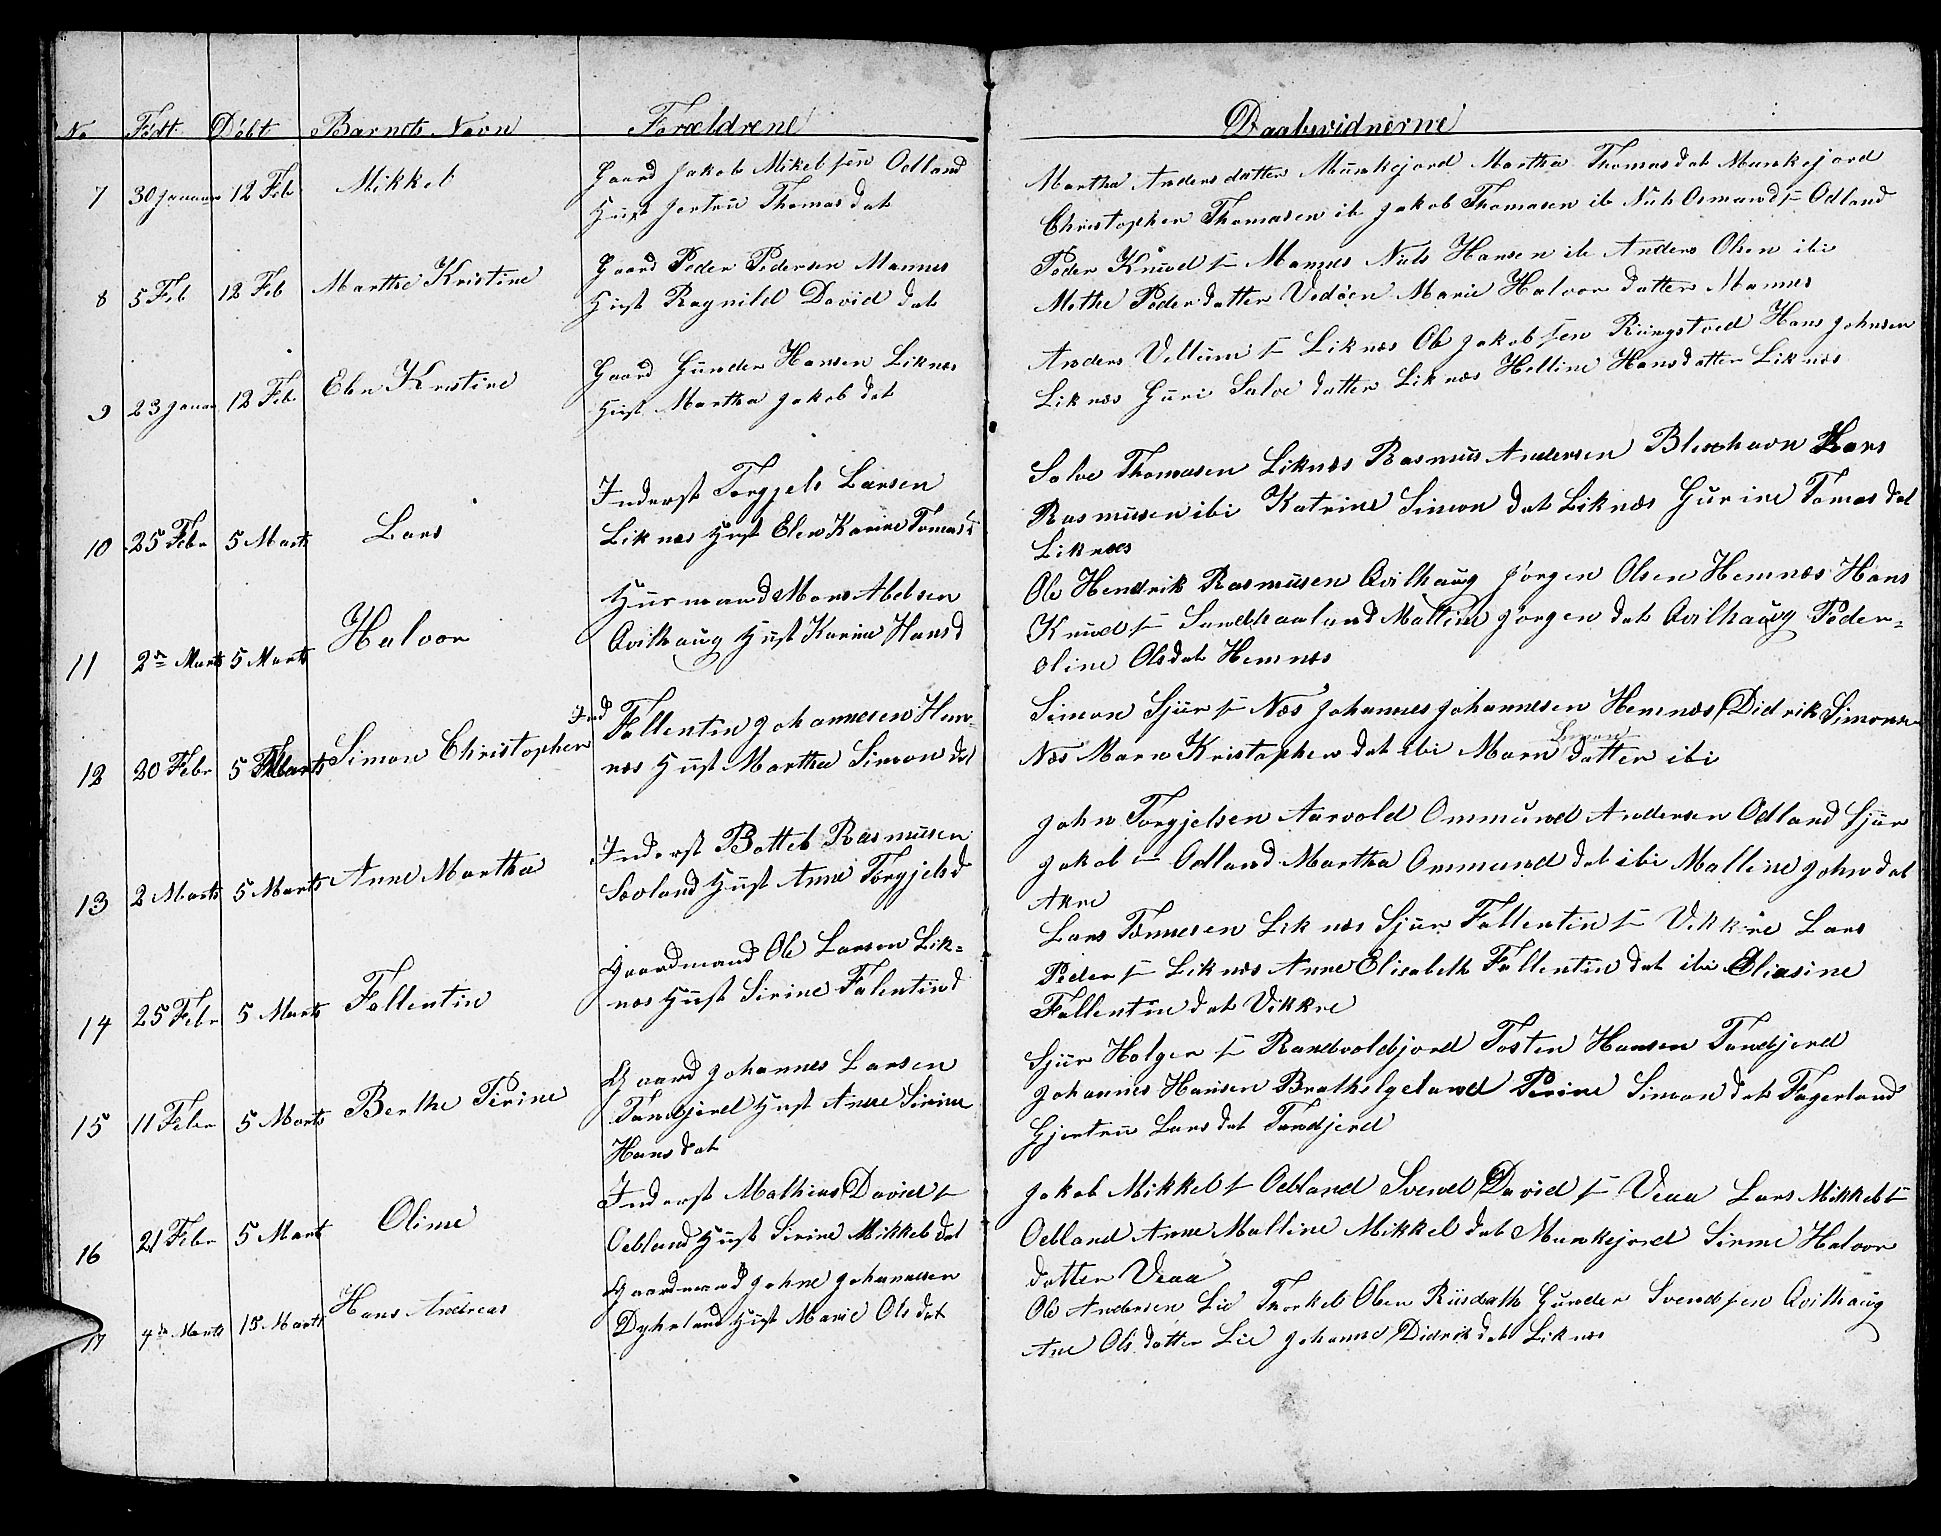 No Födt Döbt Barnets Navn Forældrene Daabsvidnerne
7 30 Januar 12 Feb Mikkel Gaard Jakob Mikelsen Odland
Hust Jertru Thomas dat
Martha Anders datter Munkejord Martha Thomasdat Munkejord
Christopher Thomasen ib Jakob Thomasen ib Nils Osmands Odland
8 5 Feb 12 Feb Marthe Kristine Gaard Peder Pedersen Mannes
Hust Ragnild David dat
Peder Knud s Mannes Nils Hansen ib Anders Olsen ibi
Methe Peder datter Vedöen Marie Halvor datter Mannes
9 23 Januar 12 Feb Elen Kristine Gaard Gunder Hansen Liknæs
Hust Martha Jakob dat
Anders Vellum s Liknæs Ole Jakobsen Ringstved Hans Johnsen
Liknæs Guri Salve datter Liknæs Helline Hansdatter Liknæs
10 25 Febr 5 Marts Lars Inderst Torgjels Larsen
Liknæs Hust Elen Karine Tomasd
Salve Thomasen Liknæs Rasmus Andersen Blixhavn Lars
Rasmusen ibi Katrine Simon dat Liknæs Gurine Tomas dat
Liknæs
11 2n Marts 5 Marts Halvor Husmand Mons Abelsen
Qvilhaug Hust Karine Hansd
Ole Hendrik Rasmusen Qvilhaug Jörgen Olsen Hemnæs Hans
Knud s Sandhaaland Malline Jörgen dat Qvilhaug Peder-
oline Olsdat Hemnæs
12 20 Febr 5 Marts Simon Christopher Ind Fallentin Johannesen Hem-
næs Hust Martha Simon dat
Simon Sjur s Næs Johannes Johannesen Hemnæs Didrik Simonsen
Næs Maren Kristopher dat ibi Maren Simon datter ibi
13 2 Marts 5 Marts Anne Martha Inderst Bottel Rasmusen
Sæoland Hust Anne Torgjelsd
John Torgjelsen Aarvold Ommund Andersen Odland Sjur
Jakob s Odland Martha Ommund dat ibi Malline John dat
Akre
14 25 Febr 5 Marts Fallentin Gaardmand Ole Larsen Lik-
næs Hust Sirine Falentind
Lars Tönnesen Liknæs Sjur Fallentin s Vikkre Lars
Peder s Liknæs Anne Elisabeth Fallentin dat ibi Eliasine
Fallentin dat Vikkre
15 11 Febr 5 Marts Berthe Perine Gaard Johannes Larsen
Tandjerd Hust Anne Sirine
Hans dat
Sjur Holger s Randvoldsjord Tosten Hansen Tandjerd
Johannes Hansen Brathelgeland Perine Simon dat Fagerland
Gjertru Lars dat Tandjerd
16 21 Febr 5 Mart Oline Inderst Mathias David s
Oebland Hust Sirine Mikkel dat
Jakob Mikkel s Oebland Svend David s Veaa Lars Mikkel s
Oebland Anne Malline Mikkel dat Munkejord Sirine Halvor
datter Veaa
17 4de Marts 15 Marts Hans Andreas Gaardmand Johne Johannesen
Dyheland Hust Marie Ols dat
Ole Andersen Lie Thorkel Olsen Risdath Gunder Svendsen Qvilhaug
Ane Ols datter Lie Johanne Didrik dat Liknæs